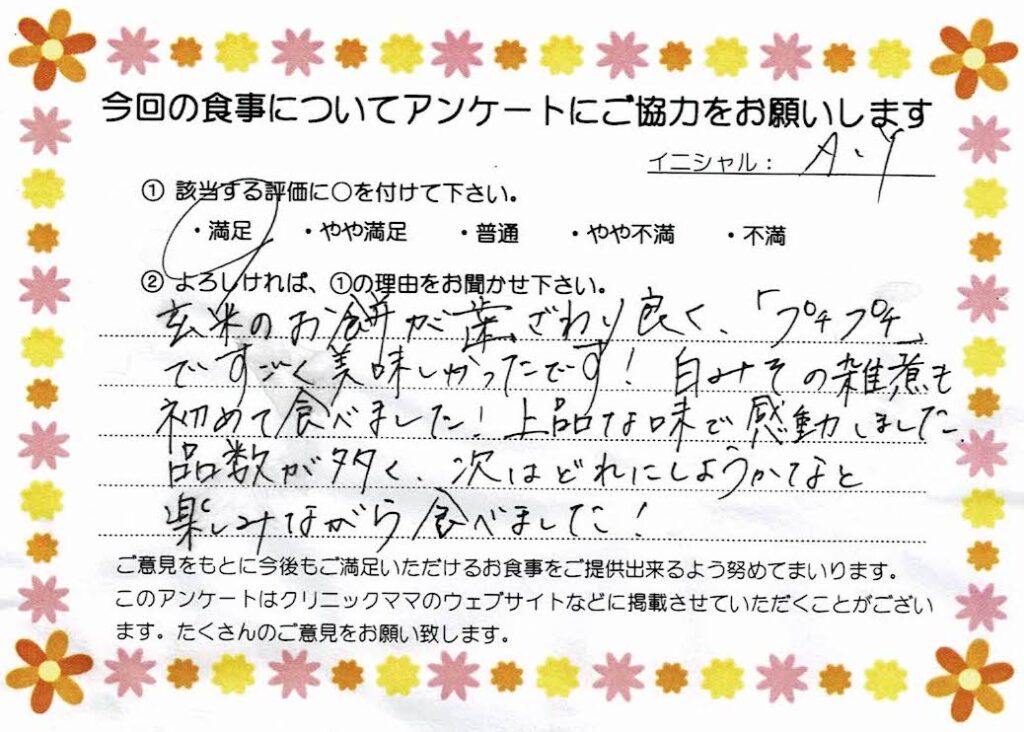 今回の食事についてアンケートにご協力をお願いします
イニシャル： A.Y
① 該当する評価に○を付けて下さい。
・満足 ・やや満足 ・普通 ・やや不満 ・不満
② よろしければ、①の理由をお聞かせ下さい。
玄米のお餅が歯ざわり良く、「プチプチ」
ですごく美味しかったです！白みその雑煮も
初めて食べました！上品な味で感動しました。
品数が多く、次はどれにしようかなと
楽しみながら食べました！
ご意見をもとに今後もご満足いただけるお食事をご提供出来るよう努めてまいります。
このアンケートはクリニックママのウェブサイトなどに掲載させていただくことがござい
ます。たくさんのご意見をお願い致します。